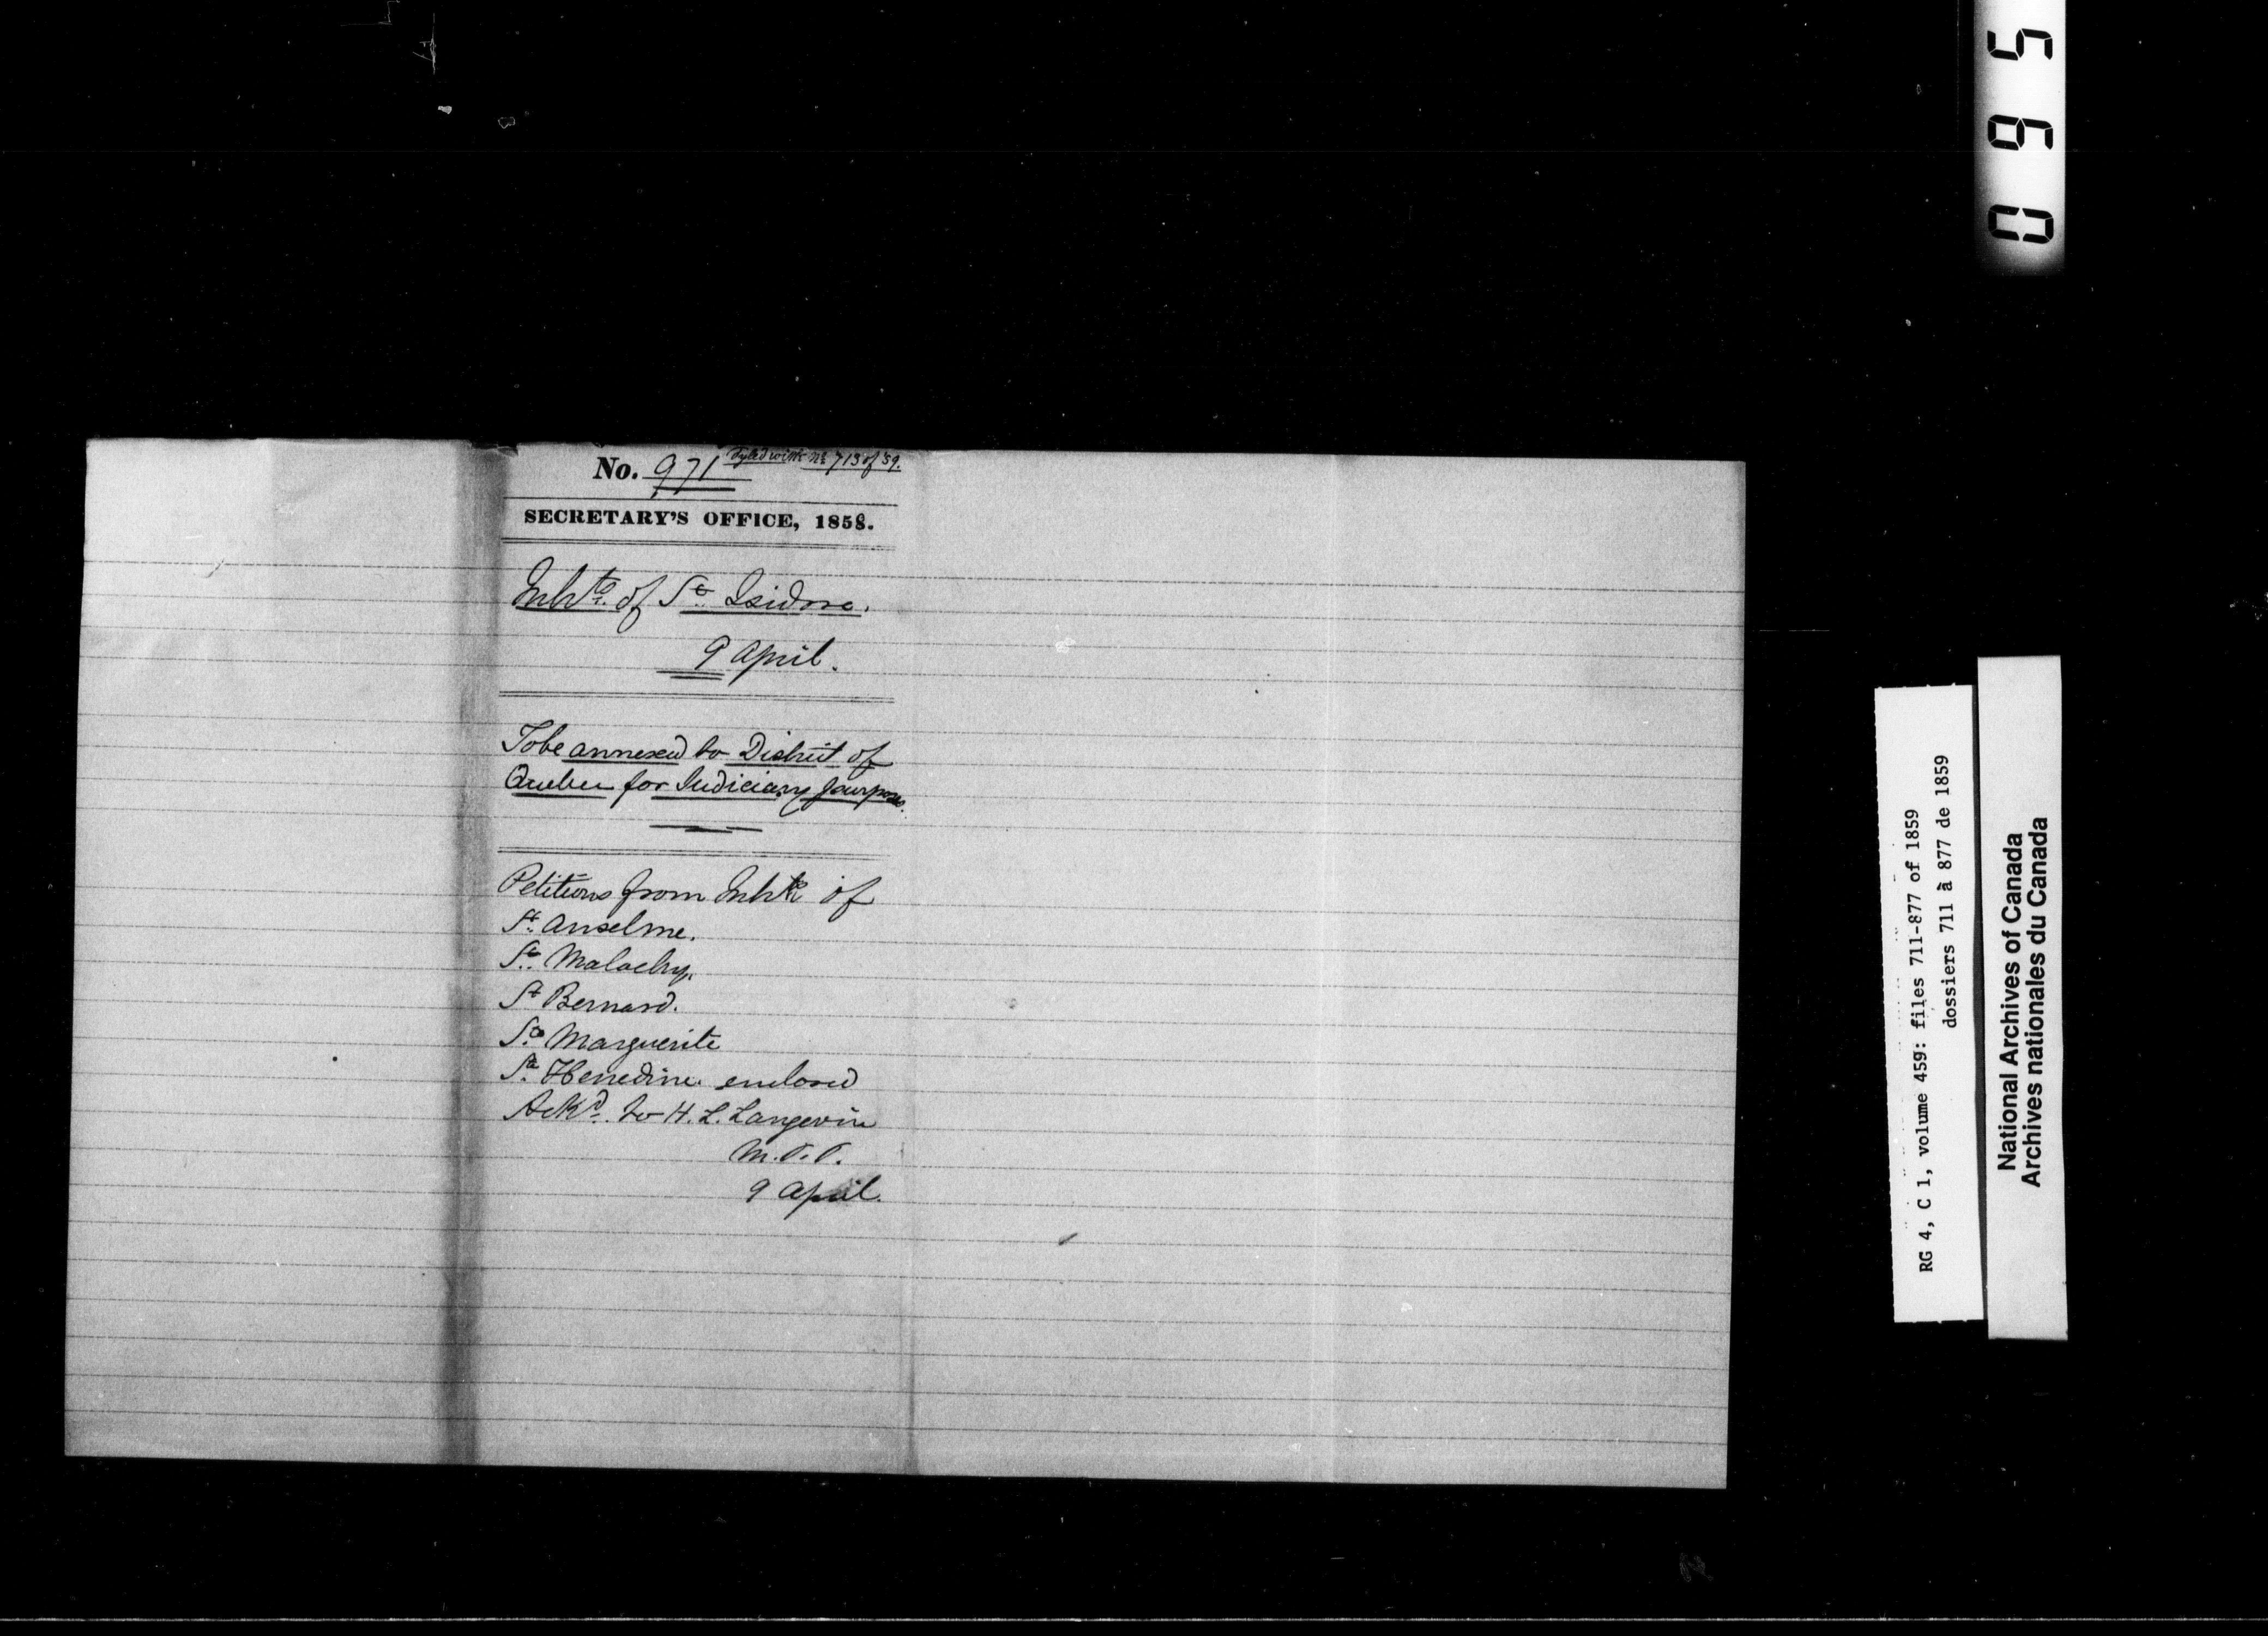 No. 971 Fyled with No 713 of 59.
SECRETARY'S OFFICE, 1858.
Inhts. of St. Isidore.
9 April.
To be annexed to District of
Quebec for Judiciary purposes.
Petitions from Inhts of
St. Anselme.
St. Malachy.
St Bernard.
Ste Marguerite
Ste Henedine. enclosed
Ackd. to H. L. Langevin
M.P.P.
9 April.
0 9 5
RG 4, C 1, volume 459: files 711-877 of 1859
dossiers 711 à 877 de 1859
National Archives of Canada
Archives nationales du Canada